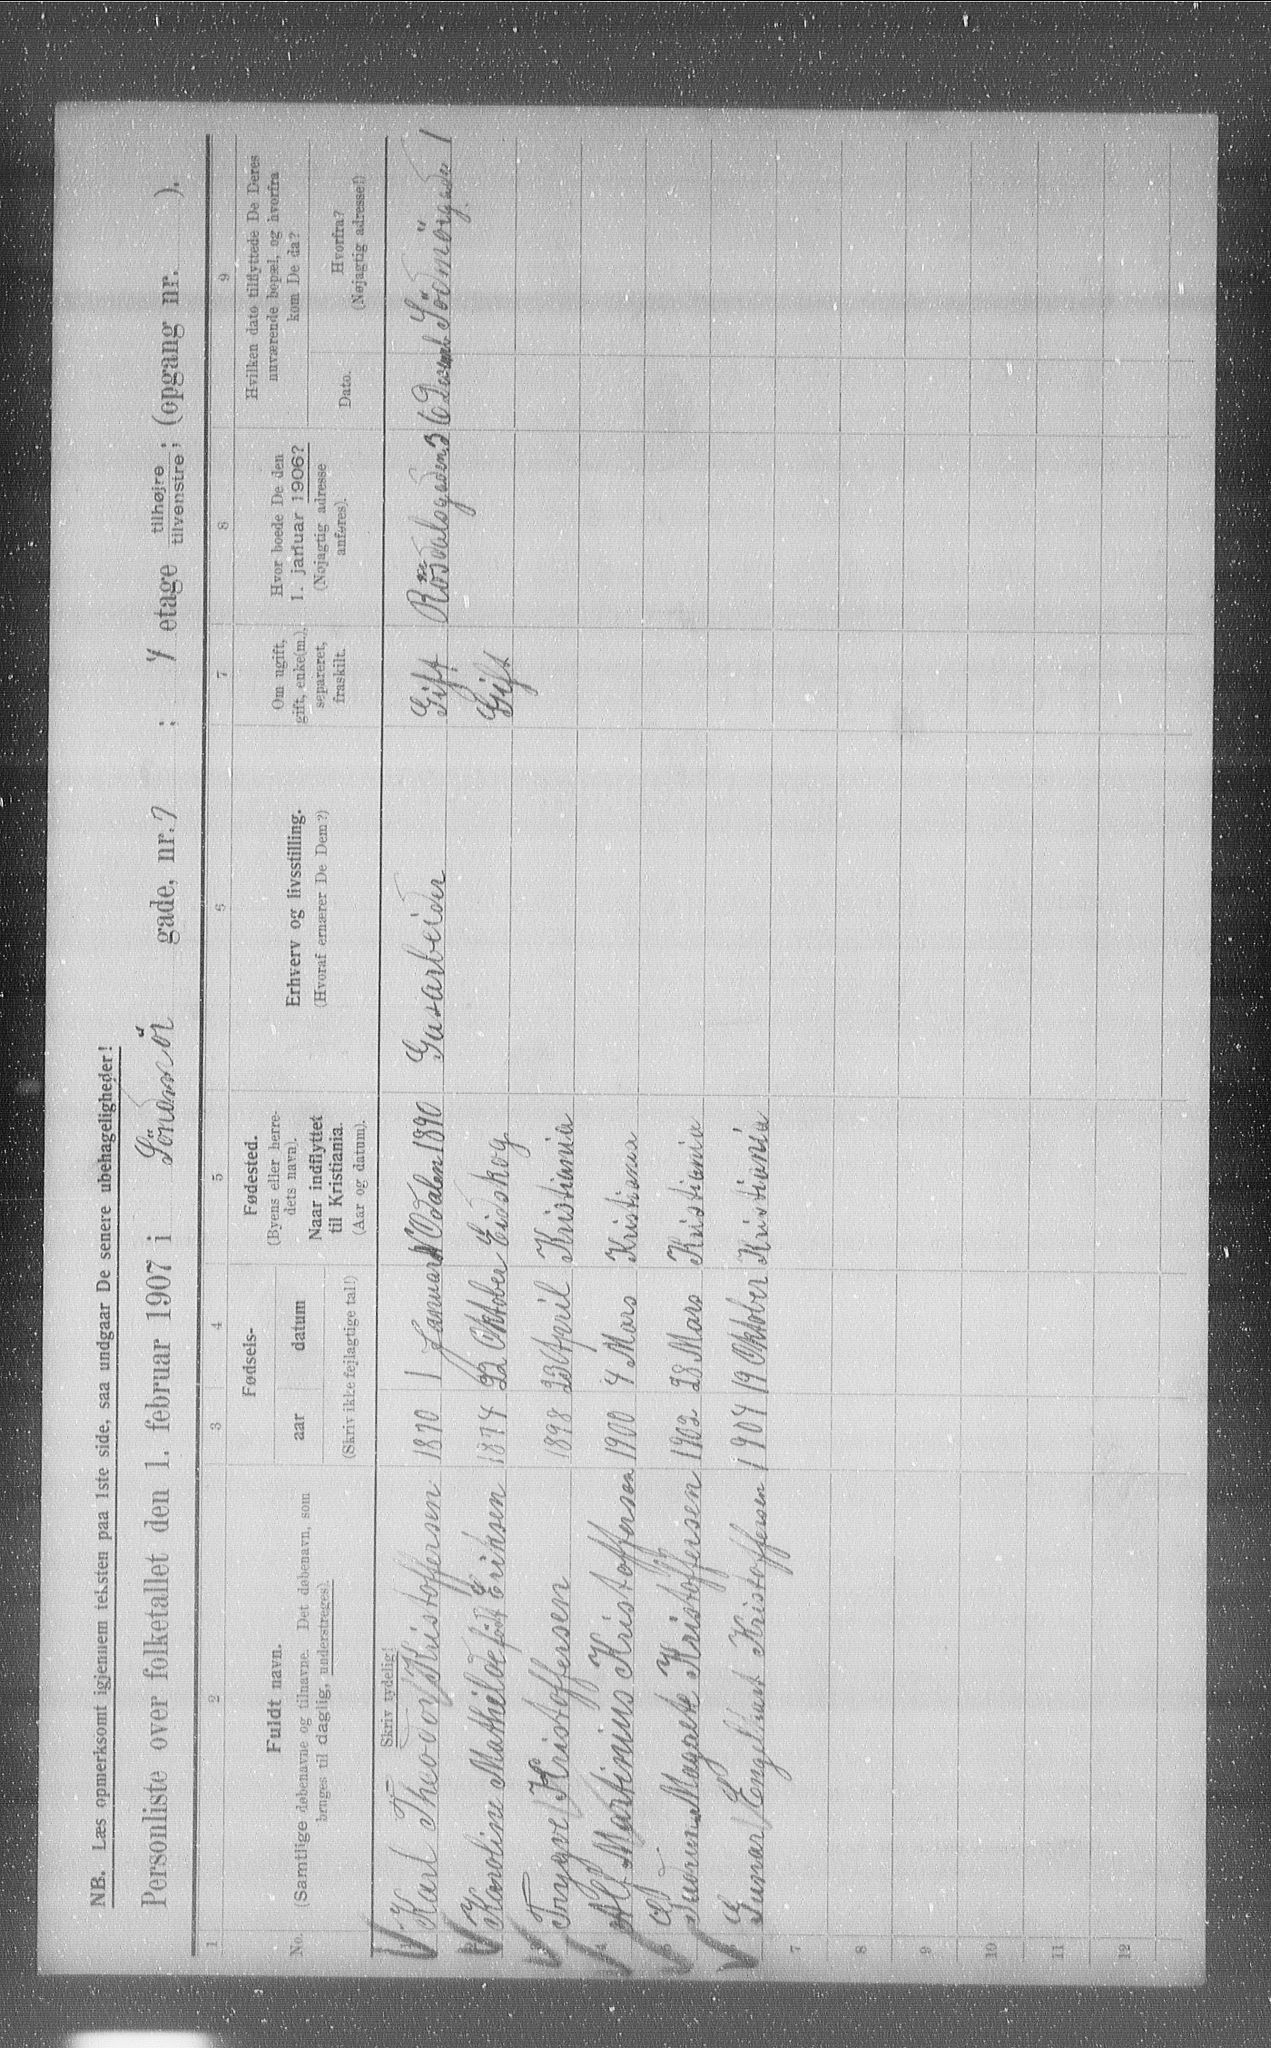 NB. Læs opmerksomt igjennem teksten paa 1ste side, saa undgaar De senere ubehageligheder!
Personliste over folketallet den 1. februar 1907 i Söndmör gade, nr. 7 ; etage tilhøjre ; tilvenstre ; (opgang nr. ).
1 2 3 4 5 6 7 8 9
No.
Fuldt navn.
(Samtlige døbenavne og tilnavne. Det døbenavn, som
bruges til daglig, understreges).
Fødsels-
aar datum
(Skriv ikke fejlagtige tal!)
Fødested.
(Byens eller herre-
dets navn).
Naar indflyttet
til Kristiania.
(Aar og datum).
Erhverv og livsstilling.
(Hvoraf ernærer De Dem?)
Om ugift,
gift, enke(m.),
separeret,
fraskilt.
Hvor boede De den
1. januar 1906?
(Nøjagtig adresse
anføres).
Hvilken dato tilflyttede De Deres
nuværende bopæl, og hvorfra
kom De da?
Dato.
Hvorfra?
(Nøjagtig adresse!)
Skriv tydelig!
Karl Theodor Kristoffersen 1870 1 Januar Odalen 1890 Gasarbeider Gift 3 6 Söndmörgade 1
Karoline Mathilde født Eriksen 1874 22 Oktober Eidskog Gift
Trygve Kristoffersen 1898 23 April Kristiania
Alf Martinius Kristoffersen 1900 4 Mars Kristiania
5 Magrete Kristoffersen 1902 28 Mars Kristiania
Gunnar Engelhart Kristoffersen 1904 19 Oktober Kristiania
7
8
9
10
11
12